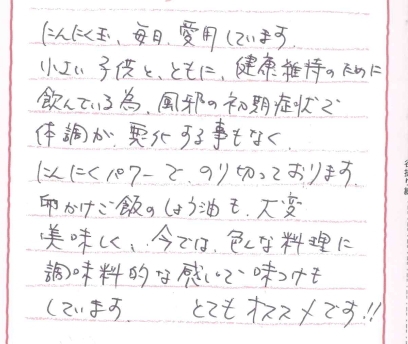 にんにく玉、毎日、愛用しています。
小さい子供と、ともに、健康維持のために
飲んでいる為、風邪の初期症状で
体調が、悪化する事もなく、
にんにくパワーで、のり切っております。
卵かけご飯のしょう油も、大変
美味しく、今では、色んな料理に
調味料的な感じで味つけも
しています。 とてもオススメです!!